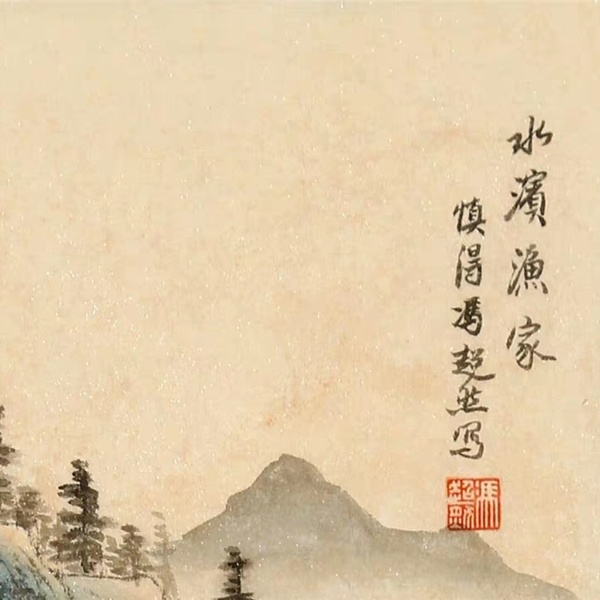 水濱漁家
慎得馮超然寫
馮超然